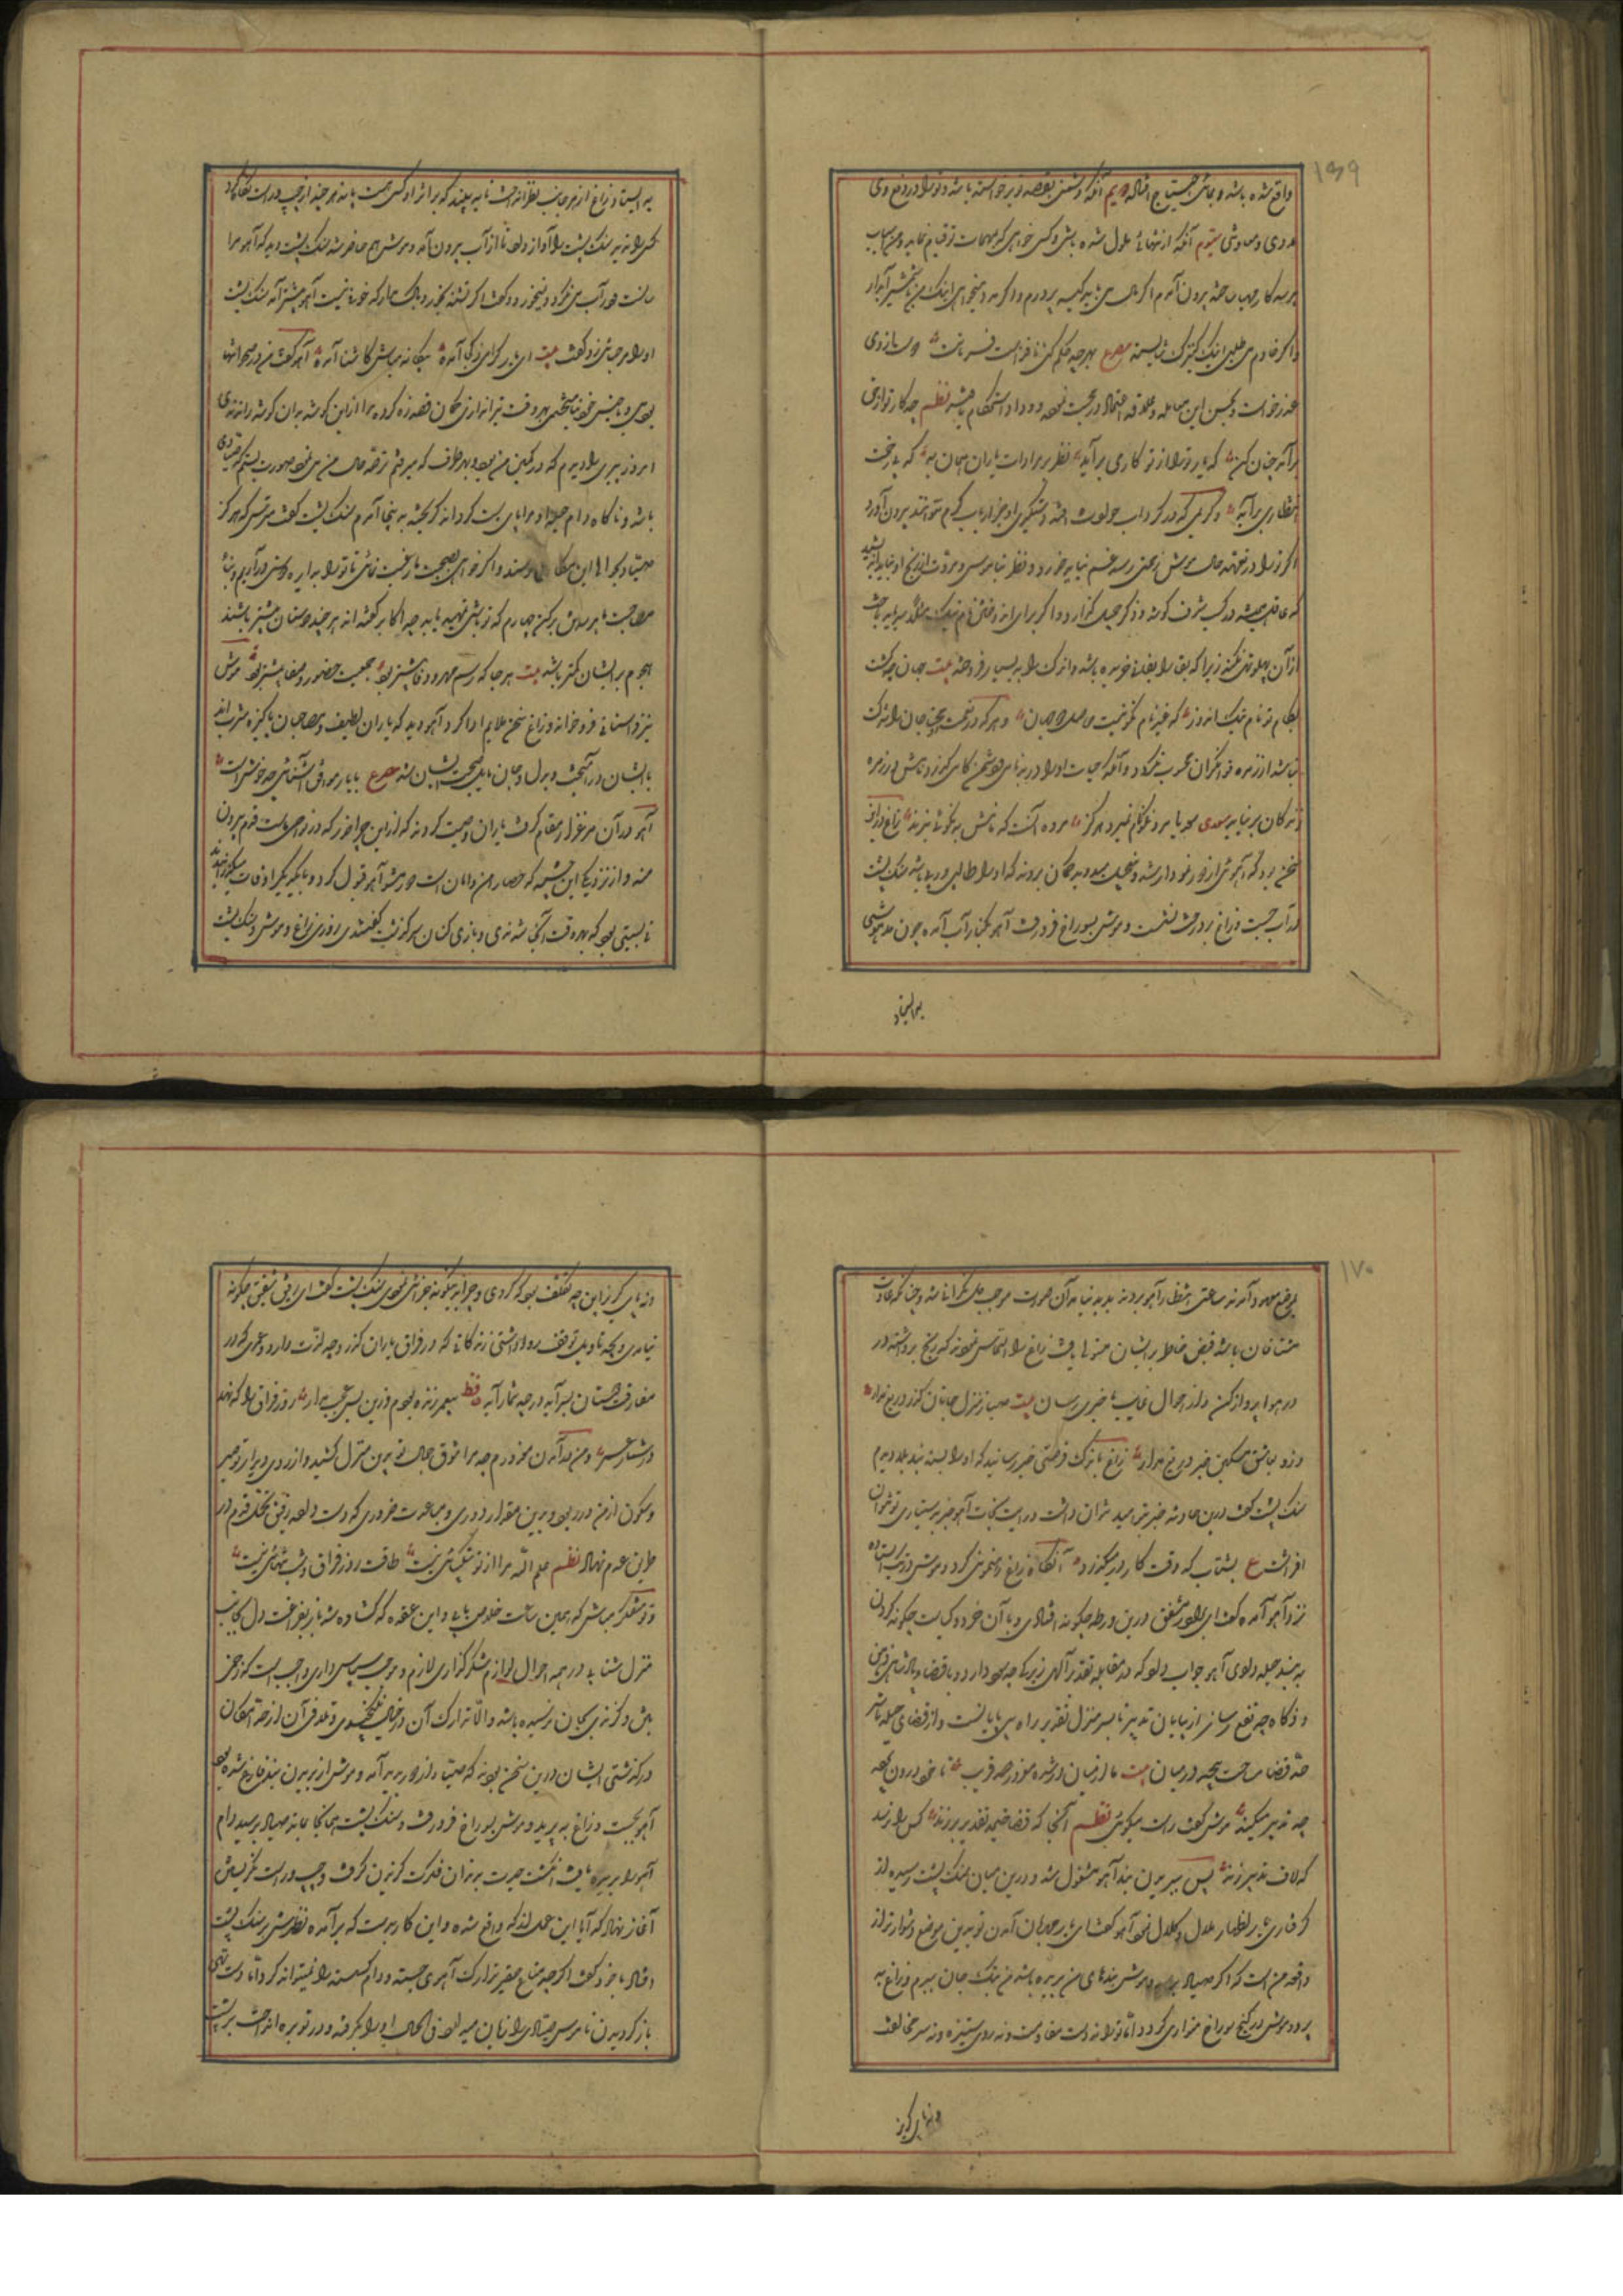 ۱۶۹
واقع شده باشد و بجائی احتیاج افتاد دویم آنکه دشمنی بقصد تو برخواسته باشد و ترا در دفع وی
مددی و معاونی سیوم آنکه از تنهائی ملول شده باشی و کسی خواهی که مهمات تو قیام نماید و من اسباب
هر سه کار مهیا ساخته بیرون آمدم اگر مال می باید کیسه پر درم و اگر مدد میخواهی اینک من با شمشیر آبدار
و اگر خادم می طلبی اینک کنیزک شایسته مصرع بهر چه حکم کنی نافذ است فرمانت دوست از وی
عذر خواست و بحسن این معامله و علاقه اعتماد در محبت
برآید چنان کن که یار ترا از تو کاری برآید نظر بر مرادات یاران چنان به که بدرخت
انتظاری برآید و کریمی که در گرداب حوادث افتد دستگیری او جز ارباب کرم نتوانند بیرون آورد
اگر ترا در تعهد حال موش رنجی رسد غم نباید خورد و نظر بناموس و مروت
که عاقل همیشه در کسب شرف کوشد و ذکر جمیل گذارد و اگر برای اندوختن نام نیک مثلا سر باید باخت
از آن پهلو تهی نکند زیرا که بقا را بفنا خریده باشد و اندک را به بسیار فروخته بیت جهان چو گشت
بکام تو نام نیک اندوز که غیر نام نکو نیست حاصل از جهان و هر که در نعمت محتاجان را شرکت
نباشد از زمره توانگران محسوب نگردد و آنکه حیات او در بدنامی و دشمن کامی گذرد نامش در زمره
زندگان برنیاید سعدی مرد نکونام نمیرد هرگز مرده آنست که نامش به نکوئی نبرند زاغ در این
سخن بود که آهوئی از دور نمودار شد و تعجیل میدوید گمان بردند که او را طالبی در پی باشد سنک پشت
در آب جست و زاغ بر درخت نشست و موش بسوراخ فرو رفت آهو بکنار آب آمده چون مدهوشی
بر ایستاد
بر ایستاد و زاغ از هر جانب نظر انداخت تا به بیند که بر اثر او کسی هست یا نه هر چند از چپ و راست نگاه کرد
کسی را ندید سنک پشت را آواز داد تا از آب بیرون آمد و موش هم حاضر شد سنک پشت دید که آهو هراسانست
در آب می نگرد و نمیخورد گفت اگر تشنه بخور و باک مدار که خوفی نیست آهو پیشتر آمد سنک پشت
او را مرحبائی زد و گفت بیت ای یار گرامی ز کجا آمده بیگانه مباش کاشنا آمده آهو گفت من در صحراها
بودمی و با جنس خود نیامیختمی بهر وقت تیراندازان کمان قصد زه کرده مرا از این گوشه بدان گوشه راندندی
امروز پیری را دیدم که در کمین من بود و بهر طرف که میرفتم ترقب حال من می نمود صورت بستم که صیادی
باشد و ناگاه دام حیله او مرا پای بست گرداند گریخته به اینجا آمدم سنک پشت گفت مترس که هرگز
صیاد بحوالی این مکان نرسد و اگر خواهی بصحبت ما رغبت نمائی تا ترا در دایره دوستی درآریم و بنای
مصاحبت ما بر سه رکن چهارم که تو باشی تمهید یابد چه اکابر گفته اند هر چند دوستان بیشتر باشند
هجوم بر ایشان کمتر باشد بیت هر جا که رسم مهر و وفا بیشتر بود جمعیت حضور و صفا بیشتر بود موش
نیز داستانی فرو خواند و زاغ سخن ملایم ادا کرد و آهو دید که یاران لطیف و مصاحبان پاکیزه مشرب اند
با ایشان در آمیخت و بدل و جان مایل صحبت ایشان شد مصرع با یار موافق آشنائی چه خوش است
آهو در آن مرغزار مقام گرفت یاران وصیت کردند که از این چراخور که در نواحی ماست قدم بیرون
منه و از نزدیکی این چشمه که حصار امن و امان است دور مشو آهو قبول کرد و با یکدیگر اوقات میگذرانیدند
نیستی بود که بهر وقت آنجا شدندی و بازی کنان سرگذشت گفتندی روزی زاغ و موش و سنک پشت
۱۷۰
بموضع معهود آمدند ساعتی انتظار آهو بردند پدید نیامد آن صورت موجب دل نگرانی شد و چنانکه عادت
مشتاقان باشد قبض خاطر بر ایشان مستولی یافت زاغ را التماس نمودند که رنج برداشته در
در هوا پرواز کن و از احوال غایب ما خبری رسان بیت صبا ز منزل جانان گذر دریغ مدار
وزو بعاشق مسکین خبر دریغ مدار زاغ باندک فرصتی خبر رسانید که او را بسته بند بلا دیدم
سنک پشت گفت درین حادثه جز بتو امید نتوان داشت و رایت نجات آهو جز بدستیاری تو نتوان
افراشت ع بشتاب که وقت کار در میگذرد آنگاه زاغ رهنمونی کرد و موش
نزد آهو آمده گفت ای برادر مشفق درین ورطه چگونه افتادی و با آن خرد و کیاست چگونه گردن
به بند حیله دادی آهو جواب داد که در مقابله تقدیر الهی زیرکی چه سود دارد و با قضای پادشاهی ذهن
و ذکا چه نفع رساند از بیابان تدبیر تا بسر منزل تقدیر راه بی پایانست و از فضای حیله تا سر
حد قضا مسافت بیحد در میان بیت ما از میان در شده مغرور صد فریب تا خود درون پرده
چه تدبیر میکنند موش گفت راست میگوئی نظم آنجا که قضا خیمه تقدیر برزند کس را نرسد
که لاف تدبیر زند پس ببریدن بند آهو مشغول شد و درین میان سنک پشت رسیده از
گرفتاری یار اظهار ملال و کلال نمود آهو گفت ای یار مهربان آمدن تو بدین موضع دشوارتر از
واقعه من است که اگر صیاد برسد و موش بندهای من بریده باشد من بتک جان ببرم و زاغ به
پرد و موش در کنج سوراخ متواری گردد اما ترا نه دست مقاومت و نه روی ستیزه و نه سر مخالفت
و نه پای گریز
و نه پای گریز این چه تکلف بود که کردی و چرا بیگونه جرأتی نمودی سنک پشت گفت ای رفیق شفیق چگونه
نیامدمی و بچه تاویل توقف روا داشتمی زندگانی که در فراق یاران گذرد چه لذت دارد و عمری که در
مفارقت دوستان بسر آید در چه شمار آید قطعه بی عمر زنده ام من و زین بس عجب مدار روز فراق را که نهد
در شمار عمر و من در آمدن معذورم چه مرا شوق جمالت بدین منزل کشید و آرزوی دیدار تو صبر
و سکون از من در ربود و بدین مقدار دوری و مباعدت ضروری که دست داد رفیق تحمل قدم در
طریق عدم نهاد نظم علم الله مرا از تو شکیبائی نیست طاقت روز فراق و شب تنهائی نیست
و تو متفکر مباش که همین ساعت خلاص یابی و این عقده که گشاده شد باز بفراغت دل بجانب
منزل شتابید در همه احوال لوازم شکرگذاری لازم و موجب سپاس داری واجب است که زخمی
بتن و گزندی بجان نرسیده باشد و الا تدارک آن در خیال نگنجیدی و تلافی آن از حد امکان
در گذشتی ایشان درین سخن بودند که صیاد از دور پدید آمد و موش از بریدن بند فارغ شده بود
آهو بجست و زاغ به پرید و موش بسوراخ فرو رفت و سنک پشت همانجا بماند صیاد برسید دام
آهو را بریده یافت انگشت حیرت بدندان فکرت گزیدن گرفت و چپ و راست نگریستن
آغاز نهاد که آیا این عمل از که واقع شده و این کار بدست که برآمده نظرش بر سنک پشت
افتاد با خود گفت اگر چه متاع حقیر تدارک آهوی جسته و دام گسسته را نمیتواند کرد اما دست تهی
باز گردیدن ناموس صیادی را زیان میدارد فی الحال او را بگرفته و در توبره انداخت بر پشت